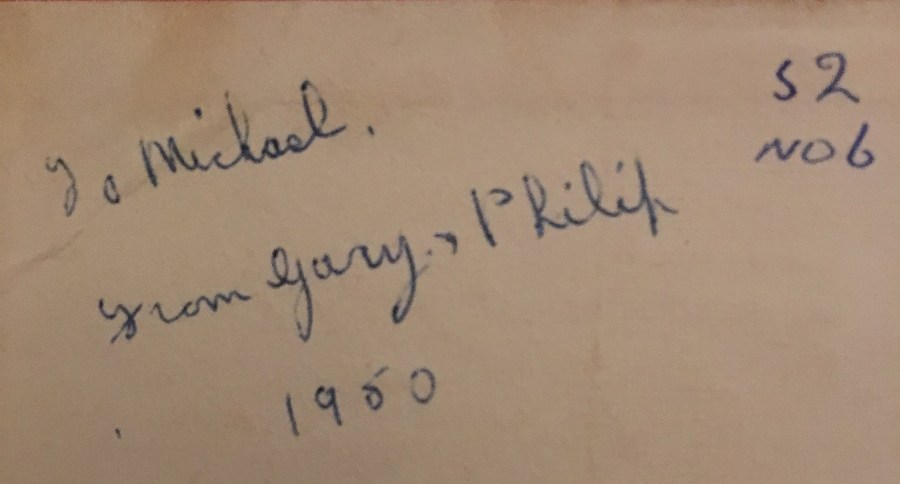 S2
NO6
To Michael.
From Gary., Philip
1950